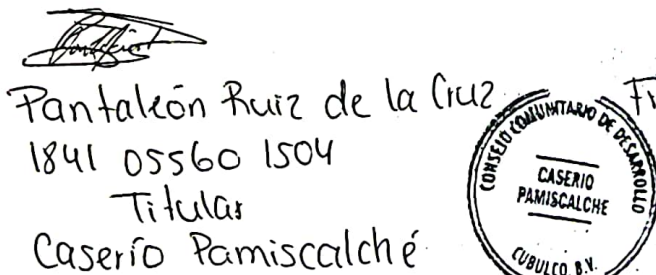 Pantaleón Ruiz de la Cruz
1841 05560 1504
Titular
Caserío Pamiscalché
CONSEJO COMUNITARIO DE DESARROLLO
CASERIO
PAMISCALCHE
CUBULCO B.V.